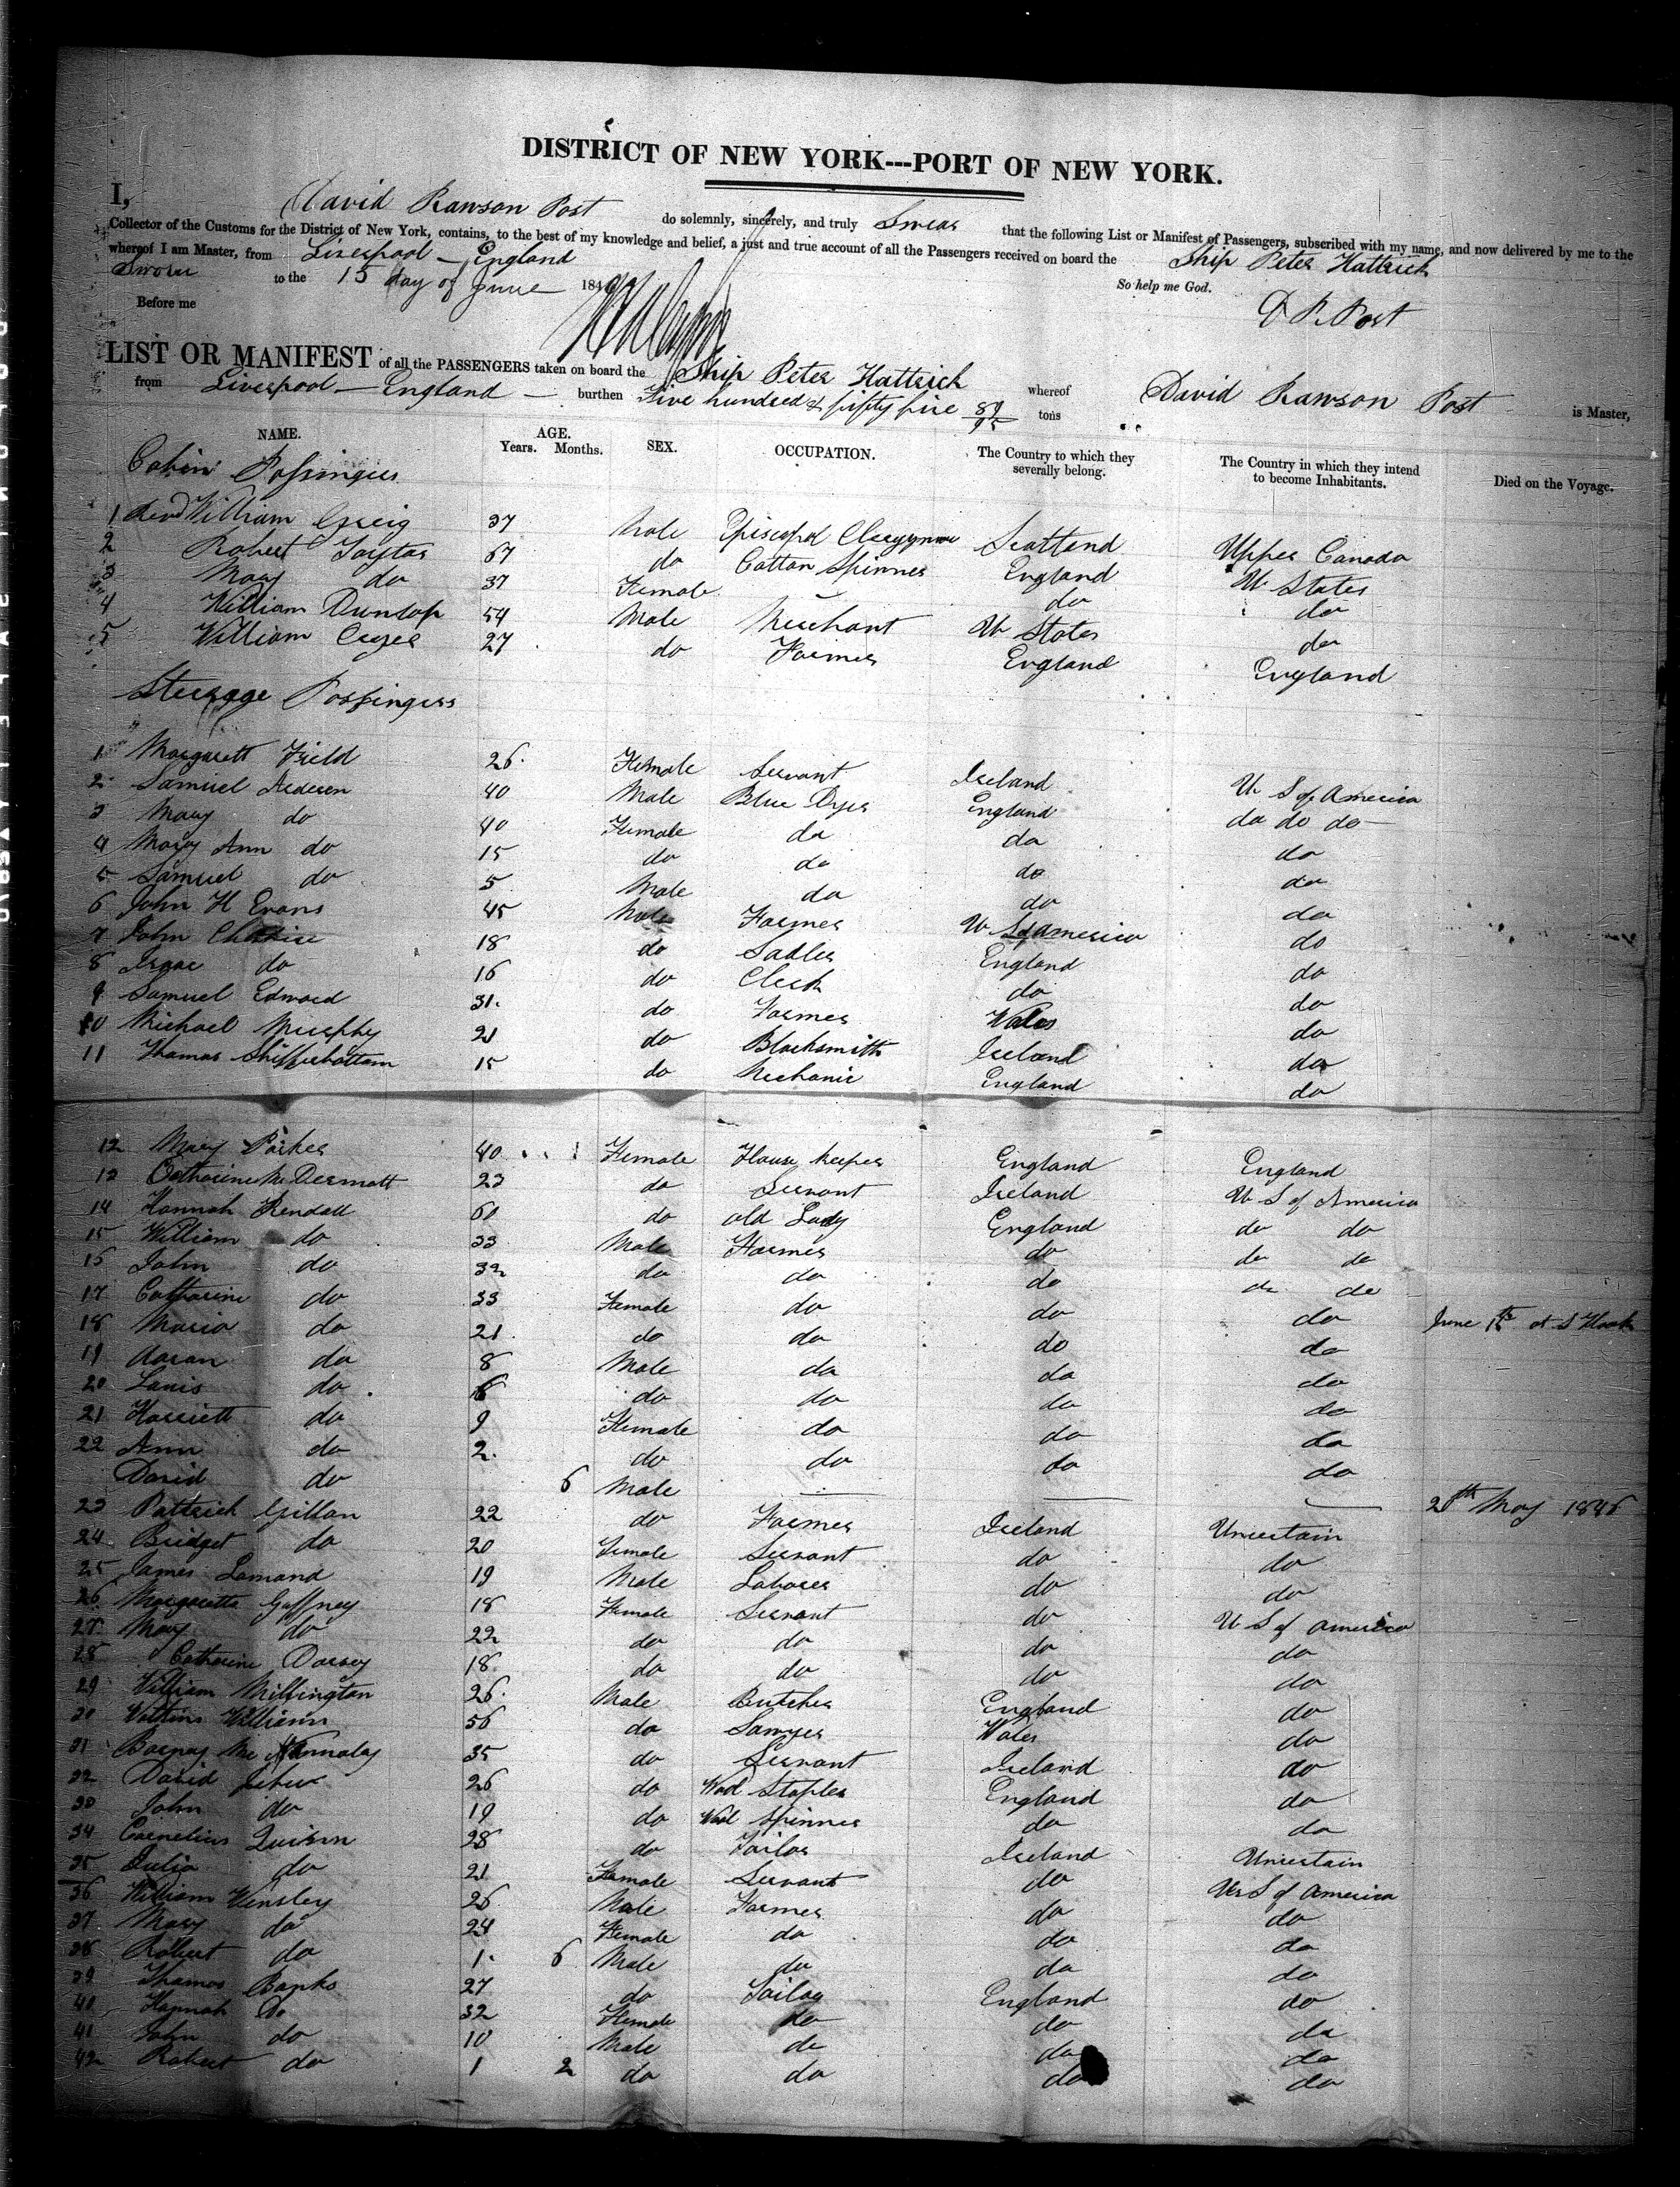 DISTRICT OF NEW YORK---PORT OF NEW YORK.
I, David Rawson Post do solemnly, sincerely, and truly Swear that the following List or Manifest of Passengers, subscribed with my name, and now delivered by me to the
Collector of the Customs for the District of New York, contains, to the best of my knowledge and belief, a just and true account of all the Passengers received on board the Ship Peter Hattrick
whereof I am Master, from Liverpool - England
Sworn to the 15 day of June 1846 So help me God.
Before me D R Post
LIST OR MANIFEST of all the PASSENGERS taken on board the Ship Peter Hattrick whereof David Rawson Post is Master,
from Liverpool - England - burthen Five hundred & fifty five 89/95 tons
NAME. AGE. Years. Months. SEX. OCCUPATION. The Country to which they severally belong. The Country in which they intend to become Inhabitants. Died on the Voyage.
Cabin Passingers
1 Revd William Greig 37 Male Episcopal Clergyman Scotland Upper Canada
2 Robert 67 do Cotton Spinner England U States
3 Mary do 37 Female do do
4 William Dunlop 54 Male Merchant U States do
5 William 27 do Farmer England England
Steerage Passingers
1 Margarett Field 26 Female Servant Ireland U S of America
2 Samuel 40 Male Blue Dyer England do do do
3 Mary do 40 Female do do do
4 Mary Ann do 15 do do do do
5 Samuel do 5 Male do do do
6 John H Evans 45 Male Farmer U S of America do
7 John 18 do Sadler England do
8 Isaac do 16 do Clerk do do
9 Samuel Edward 31 do Farmer Wales do
10 Michael Murphy 21 do Blacksmith Ireland do
11 Thomas 15 do Mechanic England do
12 Mary Parker 40 Female House keeper England England
13 Catharine McDermott 23 do Servant Ireland U S of America
14 Hannah Kendall 60 do old Lady England do do
15 William do 33 Male Farmer do do do
16 John do 32 do do do do do
17 Catharine do 33 Female do do do June 15th at S Hook
18 Maria do 21 do do do do
19 Aaran do 8 Male do do do
20 do 6 do do do do
21 Harriett do 9 Female do do do
22 Ann do 2 do do do do
David do 6 Male — — — 20th May 1846
23 Pattrick Gillon 22 do Farmer Ireland Uncertain
24 Bridget do 20 Female Servant do do
25 James Lamand 19 Male Laborer do do
26 Margaretta Gaffney 18 Female Servant do U S of America
27 Mary do 22 do do do do
28 Catharine Dorsey 18 do do do do
29 William Millington 26 Male Butcher England do
30 Watkins Williams 56 do Sawyer Wales do
31 Barnay Mc 35 do Servant Ireland do
32 David 26 do Wool Stapler England do
33 John do 19 do Wool Spinner do do
34 Cornelius 28 do Tailor Ireland Uncertain
35 Julia do 21 Female Servant do U S of America
36 William Winsley 26 Male Farmer do do
37 Mary do 24 Female do do do
38 Robert do 1 6 Male do do do
39 Thomas Banks 27 do Tailor England do
40 Hannah Do 32 Female do do do
41 John do 10 Male do do do
42 Robert do 1 2 do do do do